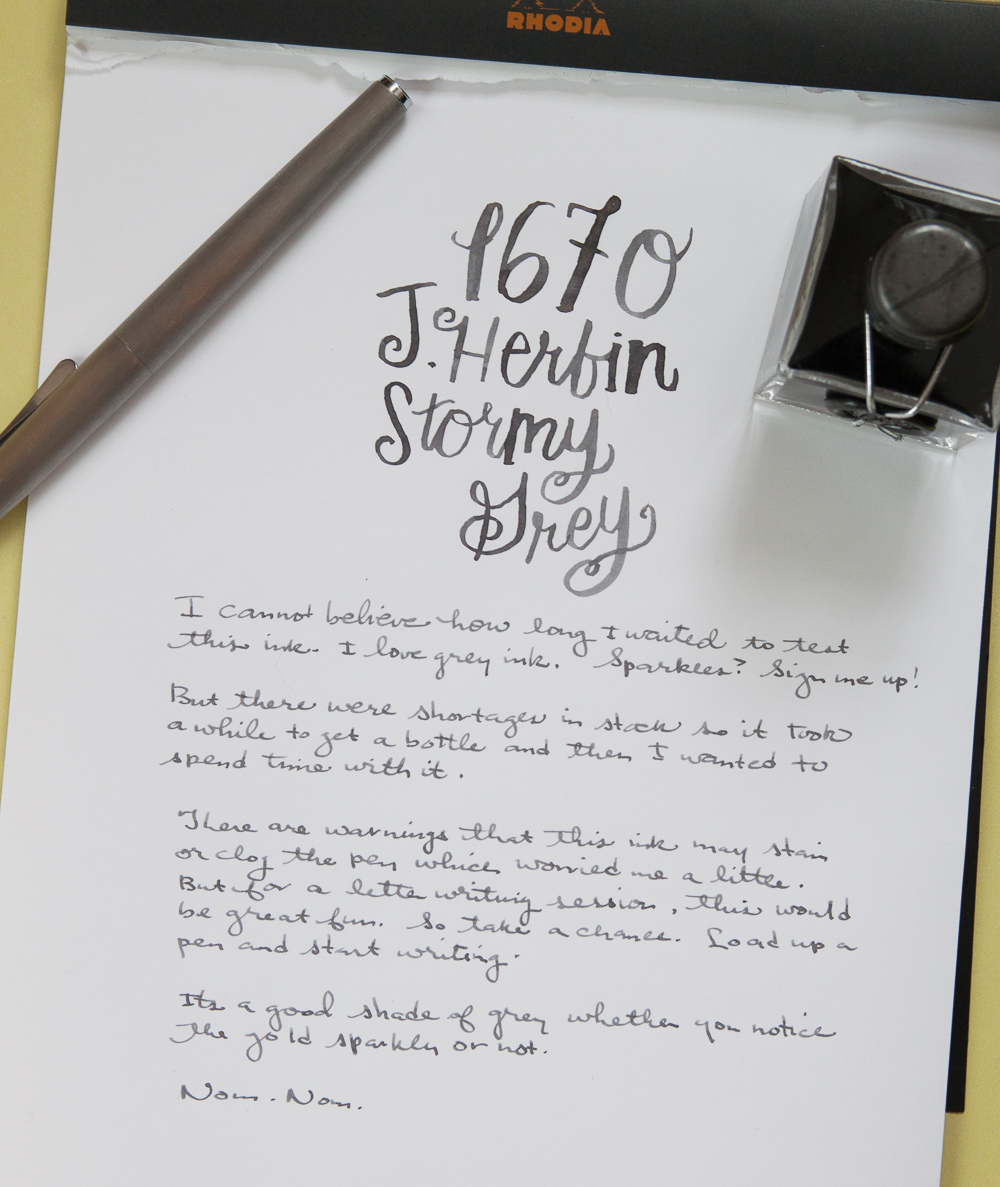 RHODIA
1670
J. Herbin
Stormy
Grey
I cannot believe how long I waited to test
this ink. I love grey ink. Sparkles? Sign me up!
But there were shortages in stock so it took
a while to get a bottle and then I wanted to
spend time with it.
There are warnings that this ink may stain
or clog the pen which worried me a little.
But for a letter writing session, this would
be great fun. So take a chance. Load up a
pen and start writing.
Its a good shade of grey whether you notice
the gold sparkly or not.
Nom. Nom.